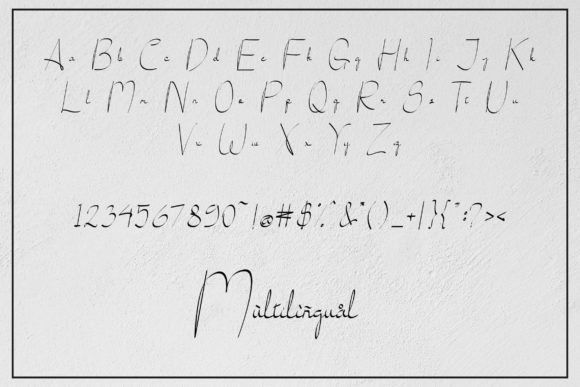 Aa Bb Cc Dd Ee Ff Gg Hh Ii Jj Kk
Ll Mm Nn Oo Pp Qq Rr Ss Tt Uu
Vv Ww Xx Yy Zz
1234567890~!@#$%^&*()_+|}{":?><
Mùltiliñguål